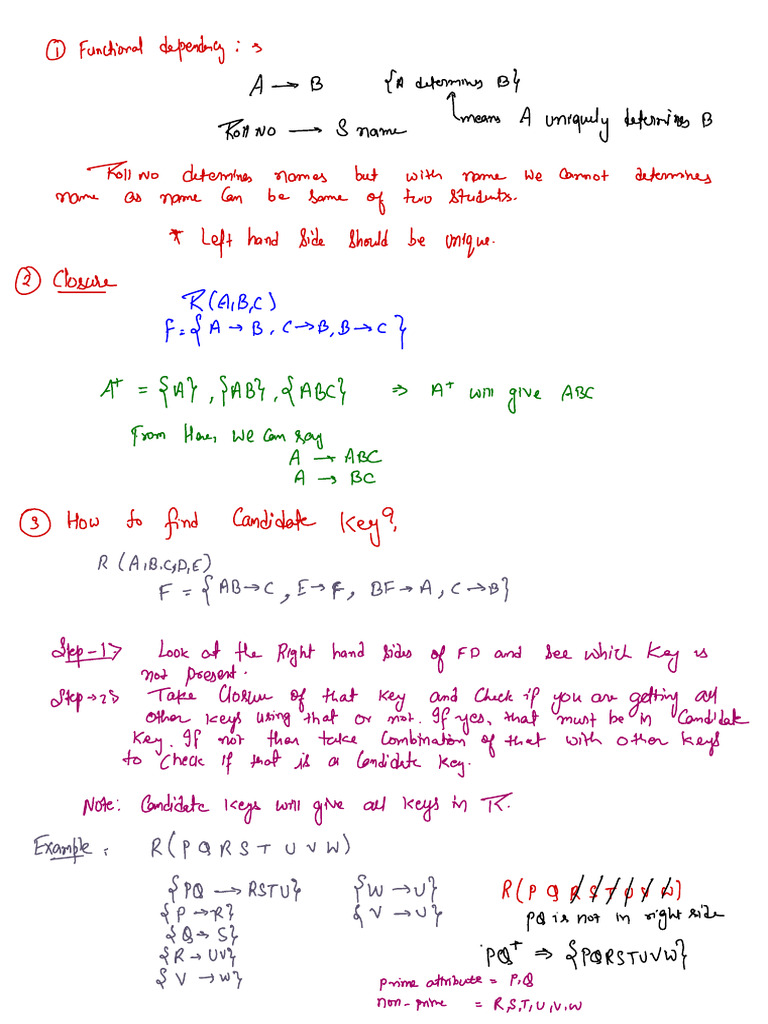 ① Functional dependency : →
A → B {A determines B}
means A uniquely determines B
Roll No → S name
Roll No determines names but with name we cannot determines
name as name Can be Same of two Students.
* Left hand Side Should be unique.
② Closure
R(A,B,C)
F = {A → B, C → B, B → C}
A⁺ = {A}, {AB}, {ABC} ⇒ A⁺ will give ABC
From Here, We Can say
A → ABC
A → BC
③ How to find Candidate Key?
R (A,B,C,D,E)
F = {AB → C, E → F, BF → A, C → B}
Step-1 Look at the Right hand Sides of FD and See which Key is
not present.
Step→2 Take Closure of that Key and Check if you are getting all
other Keys using that or not. If yes, that must be in Candidate
Key. If not than take Combination of that with other Keys
to Check if that is a Candidate Key.
Note: Candidate Keys will give all Keys in R.
Example : R(P Q R S T U V W)
{PQ → RSTU}
{P → R}
{Q → S}
{R → UV}
{V → W}
{W → U}
{V → U}
R(P Q R S T U V W)
PQ is not in right side
PQ⁺ ⇒ {PQRSTUVW}
prime attribute = P,Q
non-prime = R,S,T,U,V,W